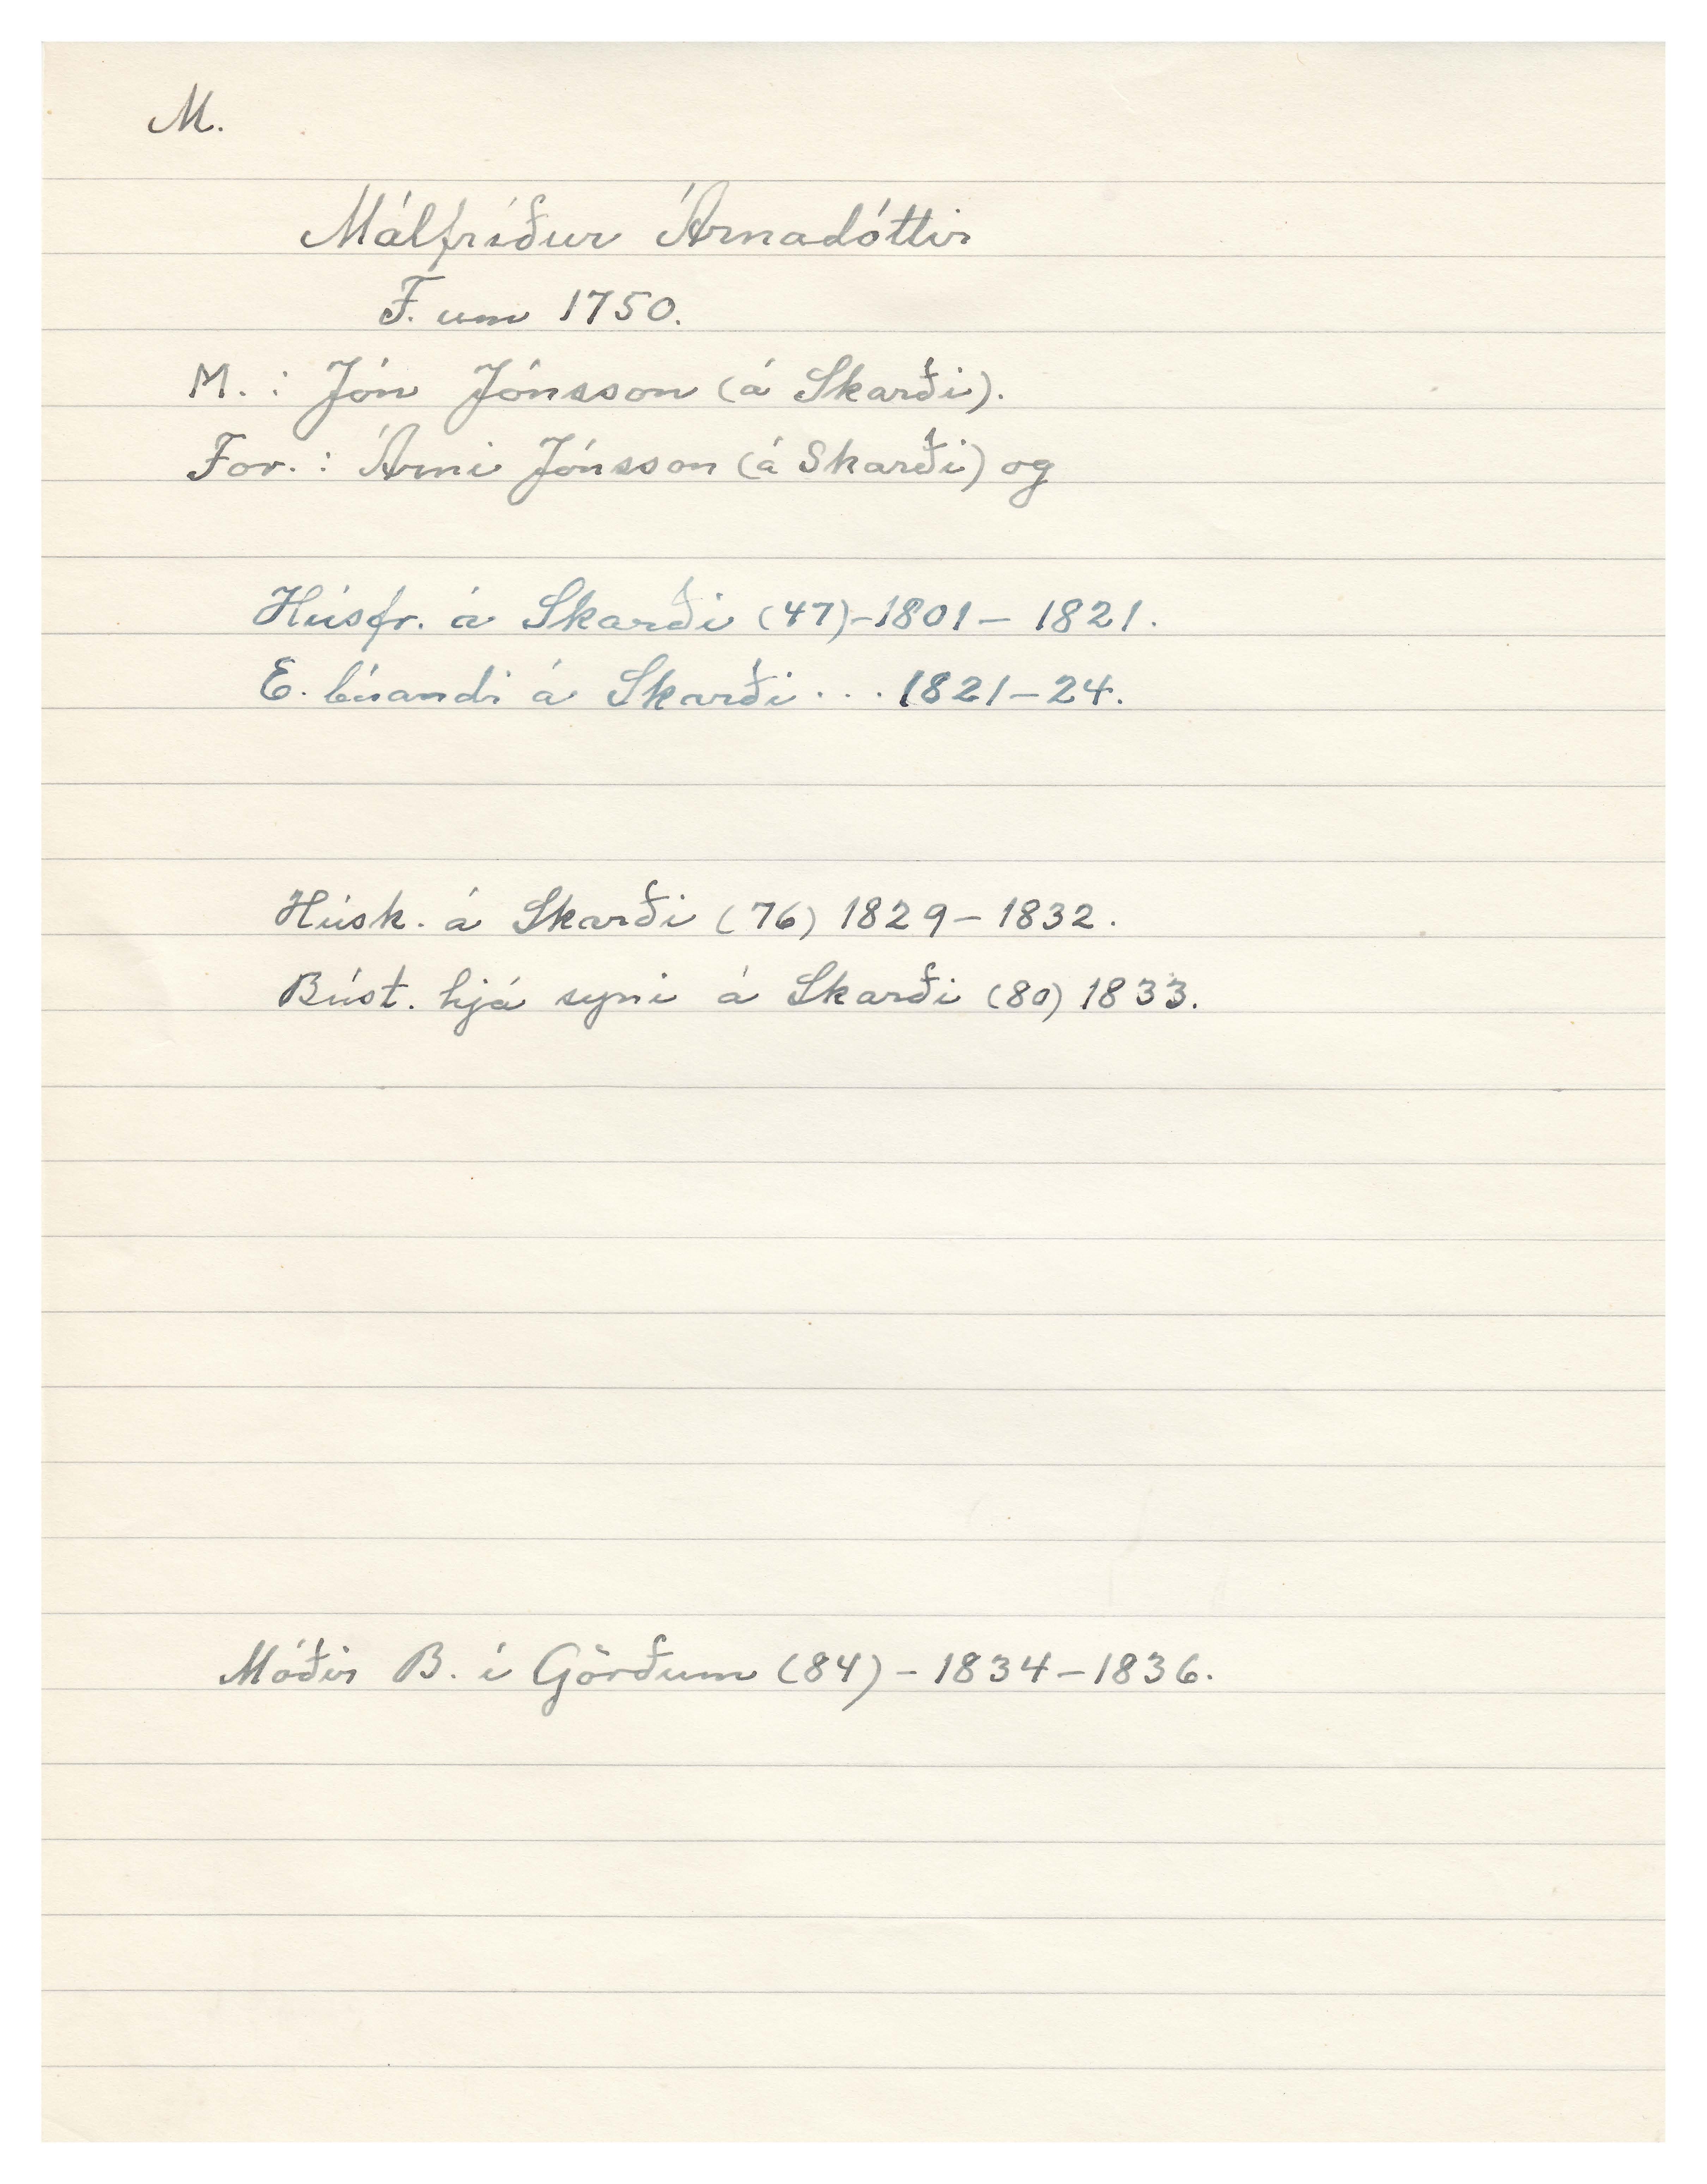 M.
Málfríður Árnadóttir
F. um 1750.
M. : Jón Jónsson (á Skarði).
For. : Árni Jónsson (á Skarði) og
Húsfr. á Skarði (47)-1801 - 1821.
E. búandi á Skarði . . . 1821-24.
Húsk. á Skarði (76) 1829 - 1832.
Búst. hjá syni á Skarði (80) 1833.
Móðir B. í Görðum (84) - 1834 - 1836.